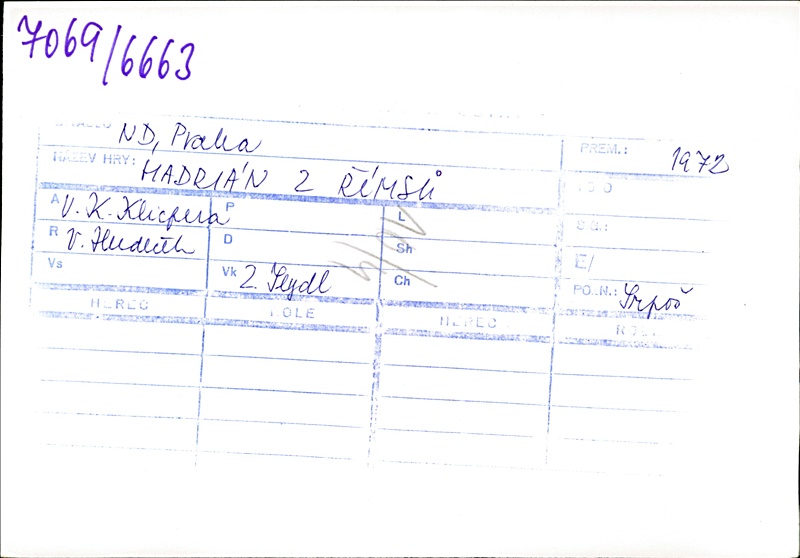 7069/6663
ND, Praha
PREM.: 1972
NÁZEV HRY: HADRIÁN Z ŘÍMSŮ
A V. K. Klicpera P L
R V. Hudeček D Sh E/
Vs Vk Z. Seydl Ch POZN.: Srpoš
HEREC ROLE HEREC ROLE